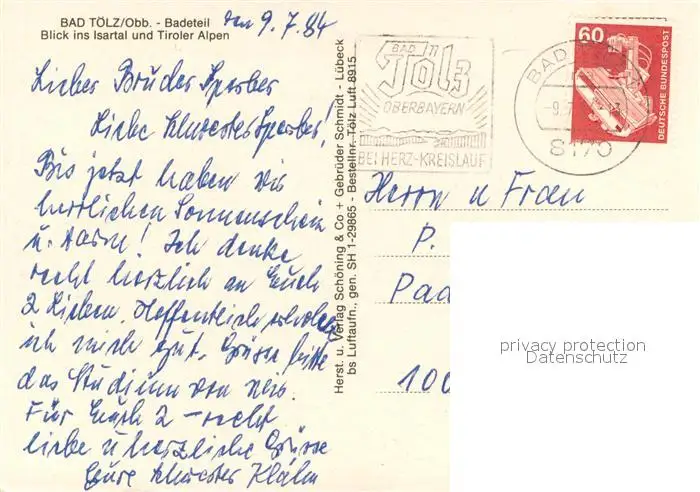 BAD TÖLZ/Obb. - Badeteil
Blick ins Isartal und Tiroler Alpen
den 9.7.84
Lieber Bruder Sperber
Liebe Schwester Sperber!
Bis jetzt haben wir
herrlichen Sonnenschein
u. warm! Ich denke
recht herzlich an Euch
2 Lieben. Hoffentlich erhole
ich mich gut. Grüsse bitte
das Studium von mir.
Für Euch 2 - recht
liebe u herzliche Grüsse
Eure Schwester
Herst. u. Verlag Schöning & Co + Gebrüder Schmidt - Lübeck
bs Luftaufn., gen. SH 1-29665 - Bestellnr. Tölz Luft 8915
BAD
Tölz
OBERBAYERN
BEI HERZ-KREISLAUF
BAD
8170
60
DEUTSCHE BUNDESPOST
Herrn u Frau
P.
Pad
100
privacy protection
Datenschutz